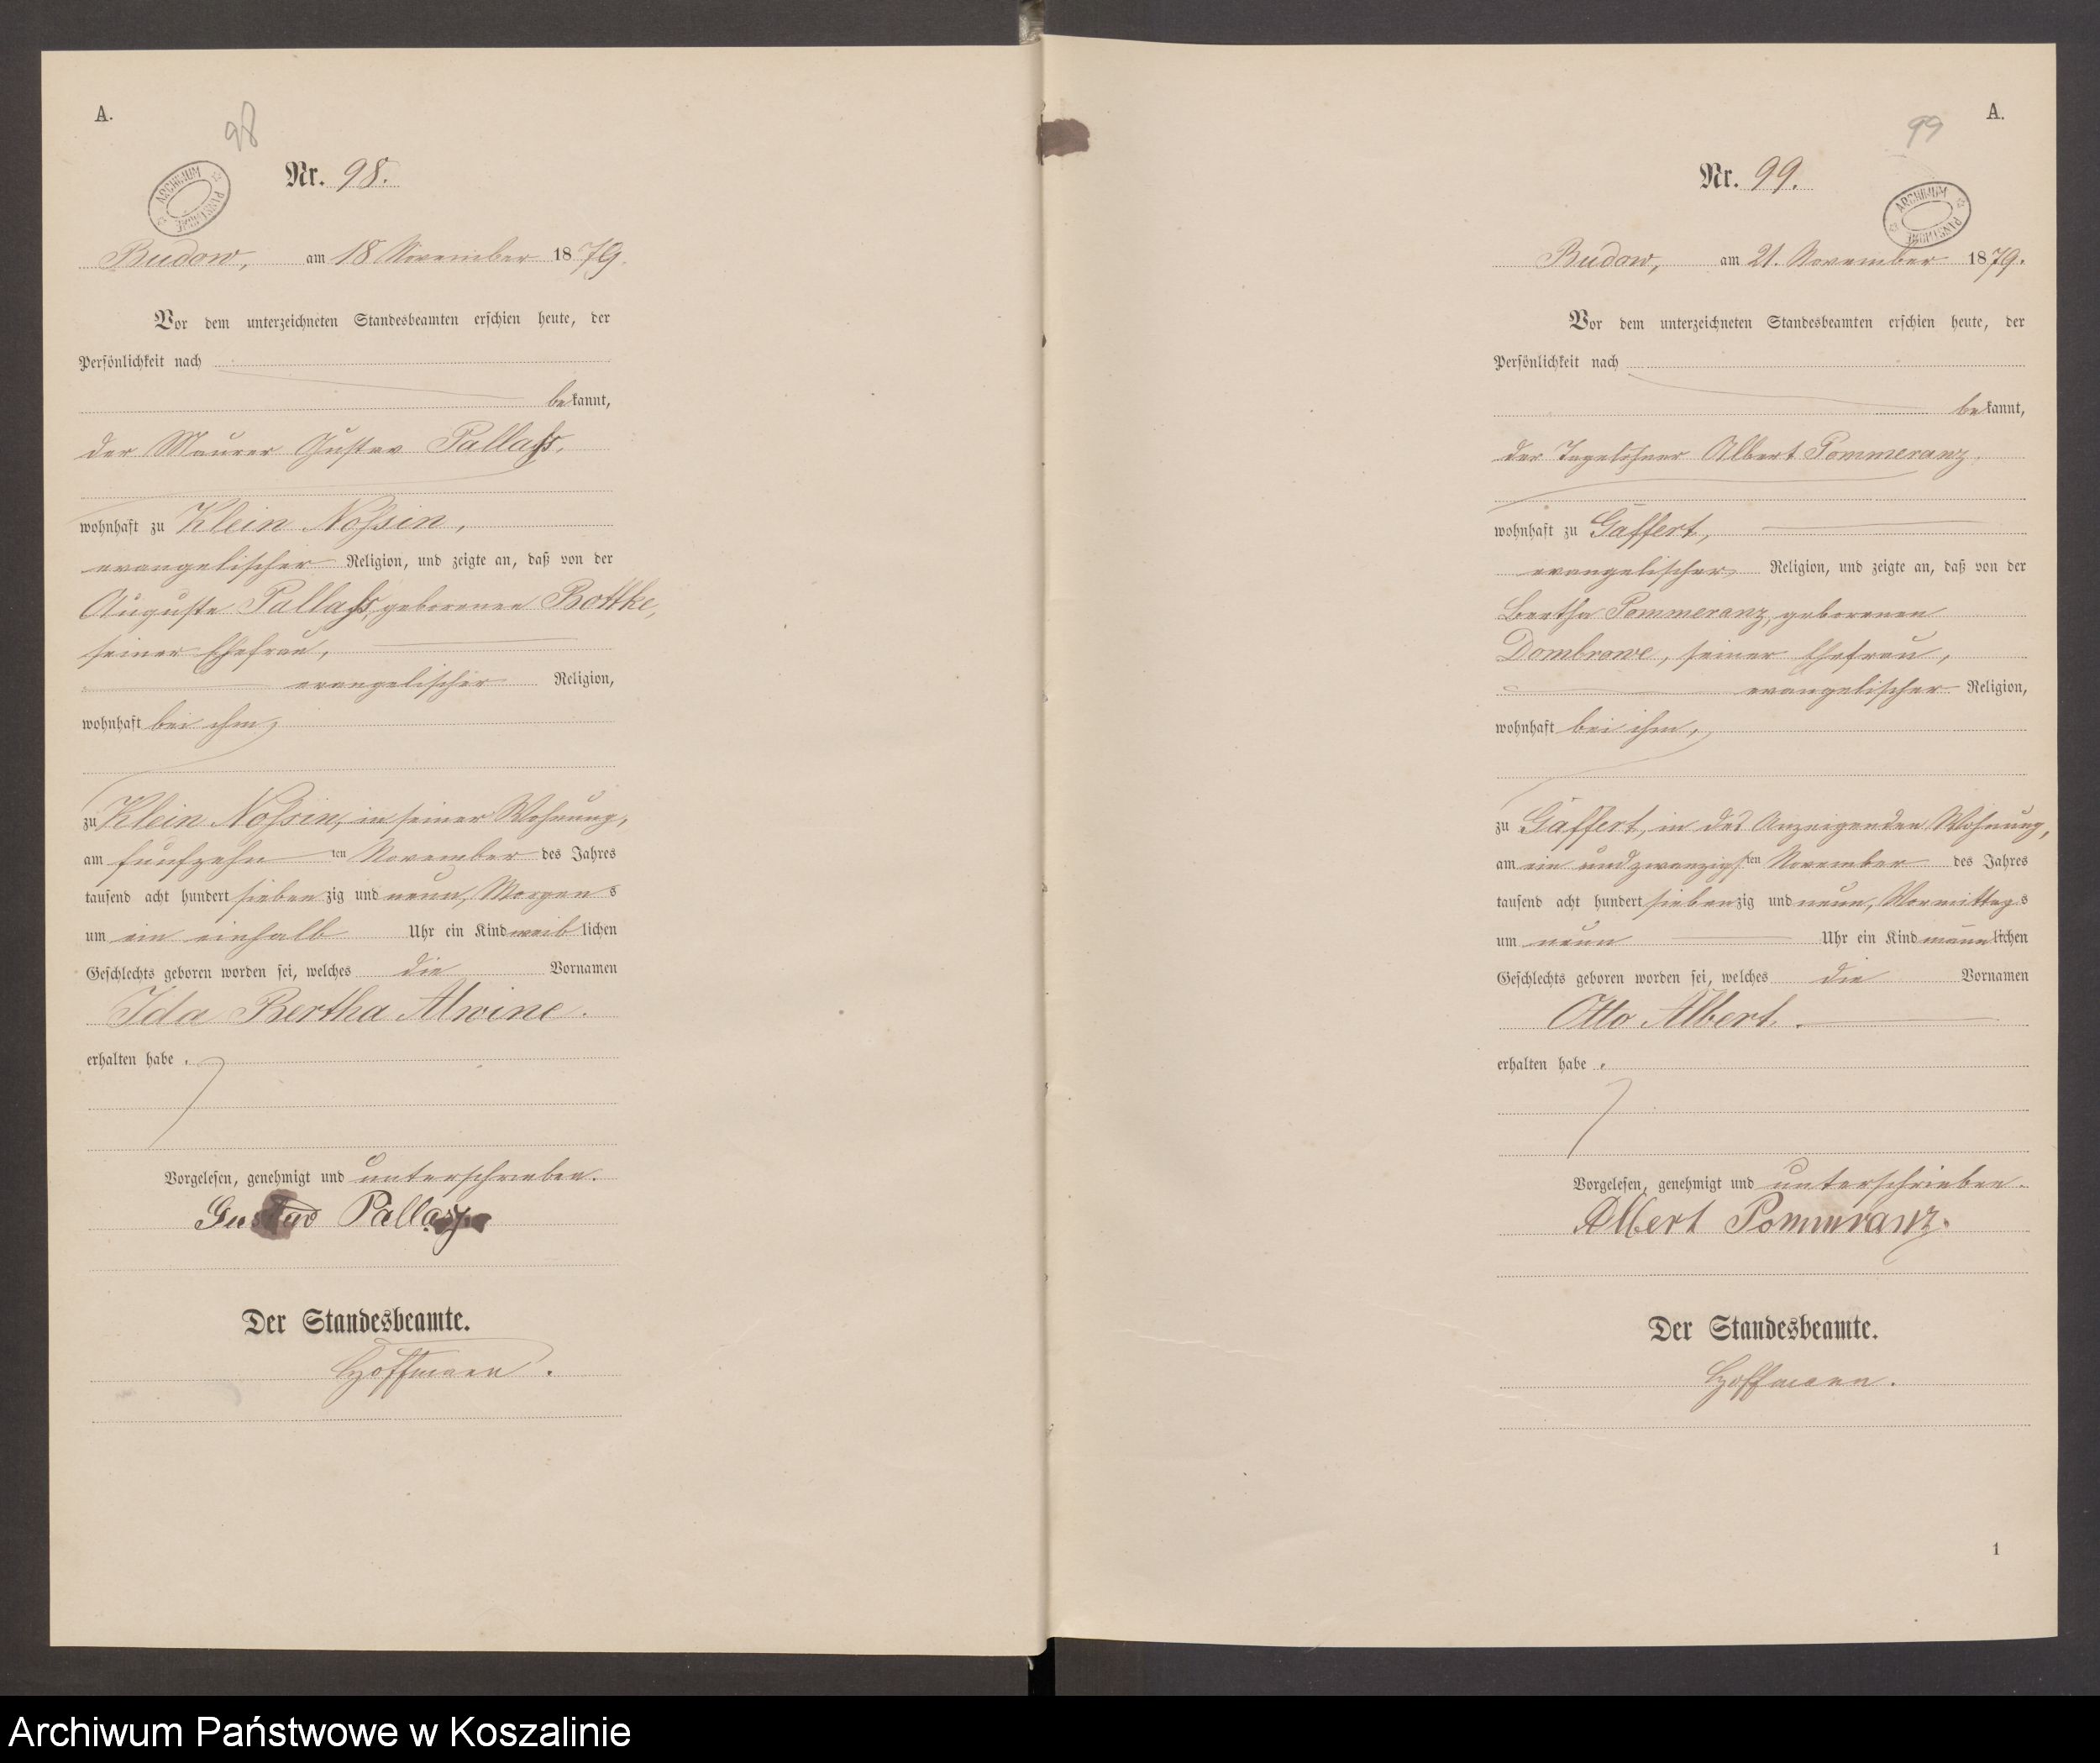 A.
98
Nr. 98.
ARCHIWUM PAŃSTWOWE
Budow, am 18 November 1879.
Vor dem unterzeichneten Standesbeamten erschien heute, der
Persönlichkeit nach
bekannt,
der Maurer Gustav Pallaß,
wohnhaft zu Klein Noßin,
evangelischer Religion, und zeigte an, daß von der
Auguste Pallaß, geborenen Bottke,
seiner Ehefrau,
evangelischer Religion,
wohnhaft bei ihm,
zu Klein Noßin, in seiner Wohnung,
am fünfzehn ten November des Jahres
tausend acht hundert siebenzig und neun, Morgens
um ein einhalb Uhr ein Kind weiblichen
Geschlechts geboren worden sei, welches die Vornamen
Ida Bertha Alwine.
erhalten habe.
Vorgelesen, genehmigt und unterschrieben.
Gustav Pallaß
Der Standesbeamte.
Hoffmann.
A.
99
Nr. 99.
ARCHIWUM PAŃSTWOWE
Budow, am 21. November 1879.
Vor dem unterzeichneten Standesbeamten erschien heute, der
Persönlichkeit nach
bekannt,
der Tagelöhner Albert Pommeranz,
wohnhaft zu Gaffert,
evangelischer Religion, und zeigte an, daß von der
Bertha Pommeranz, geborenen
Dombrowe, seiner Ehefrau,
evangelischer Religion,
wohnhaft bei ihm,
zu Gaffert, in des Anzeigenden Wohnung,
am ein und zwanzigsten November des Jahres
tausend acht hundert siebenzig und neun, Vormittags
um neun Uhr ein Kind männlichen
Geschlechts geboren worden sei, welches die Vornamen
Otto Albert.
erhalten habe.
Vorgelesen, genehmigt und unterschrieben.
Albert Pommranz.
Der Standesbeamte.
Hoffmann.
1
Archiwum Państwowe w Koszalinie